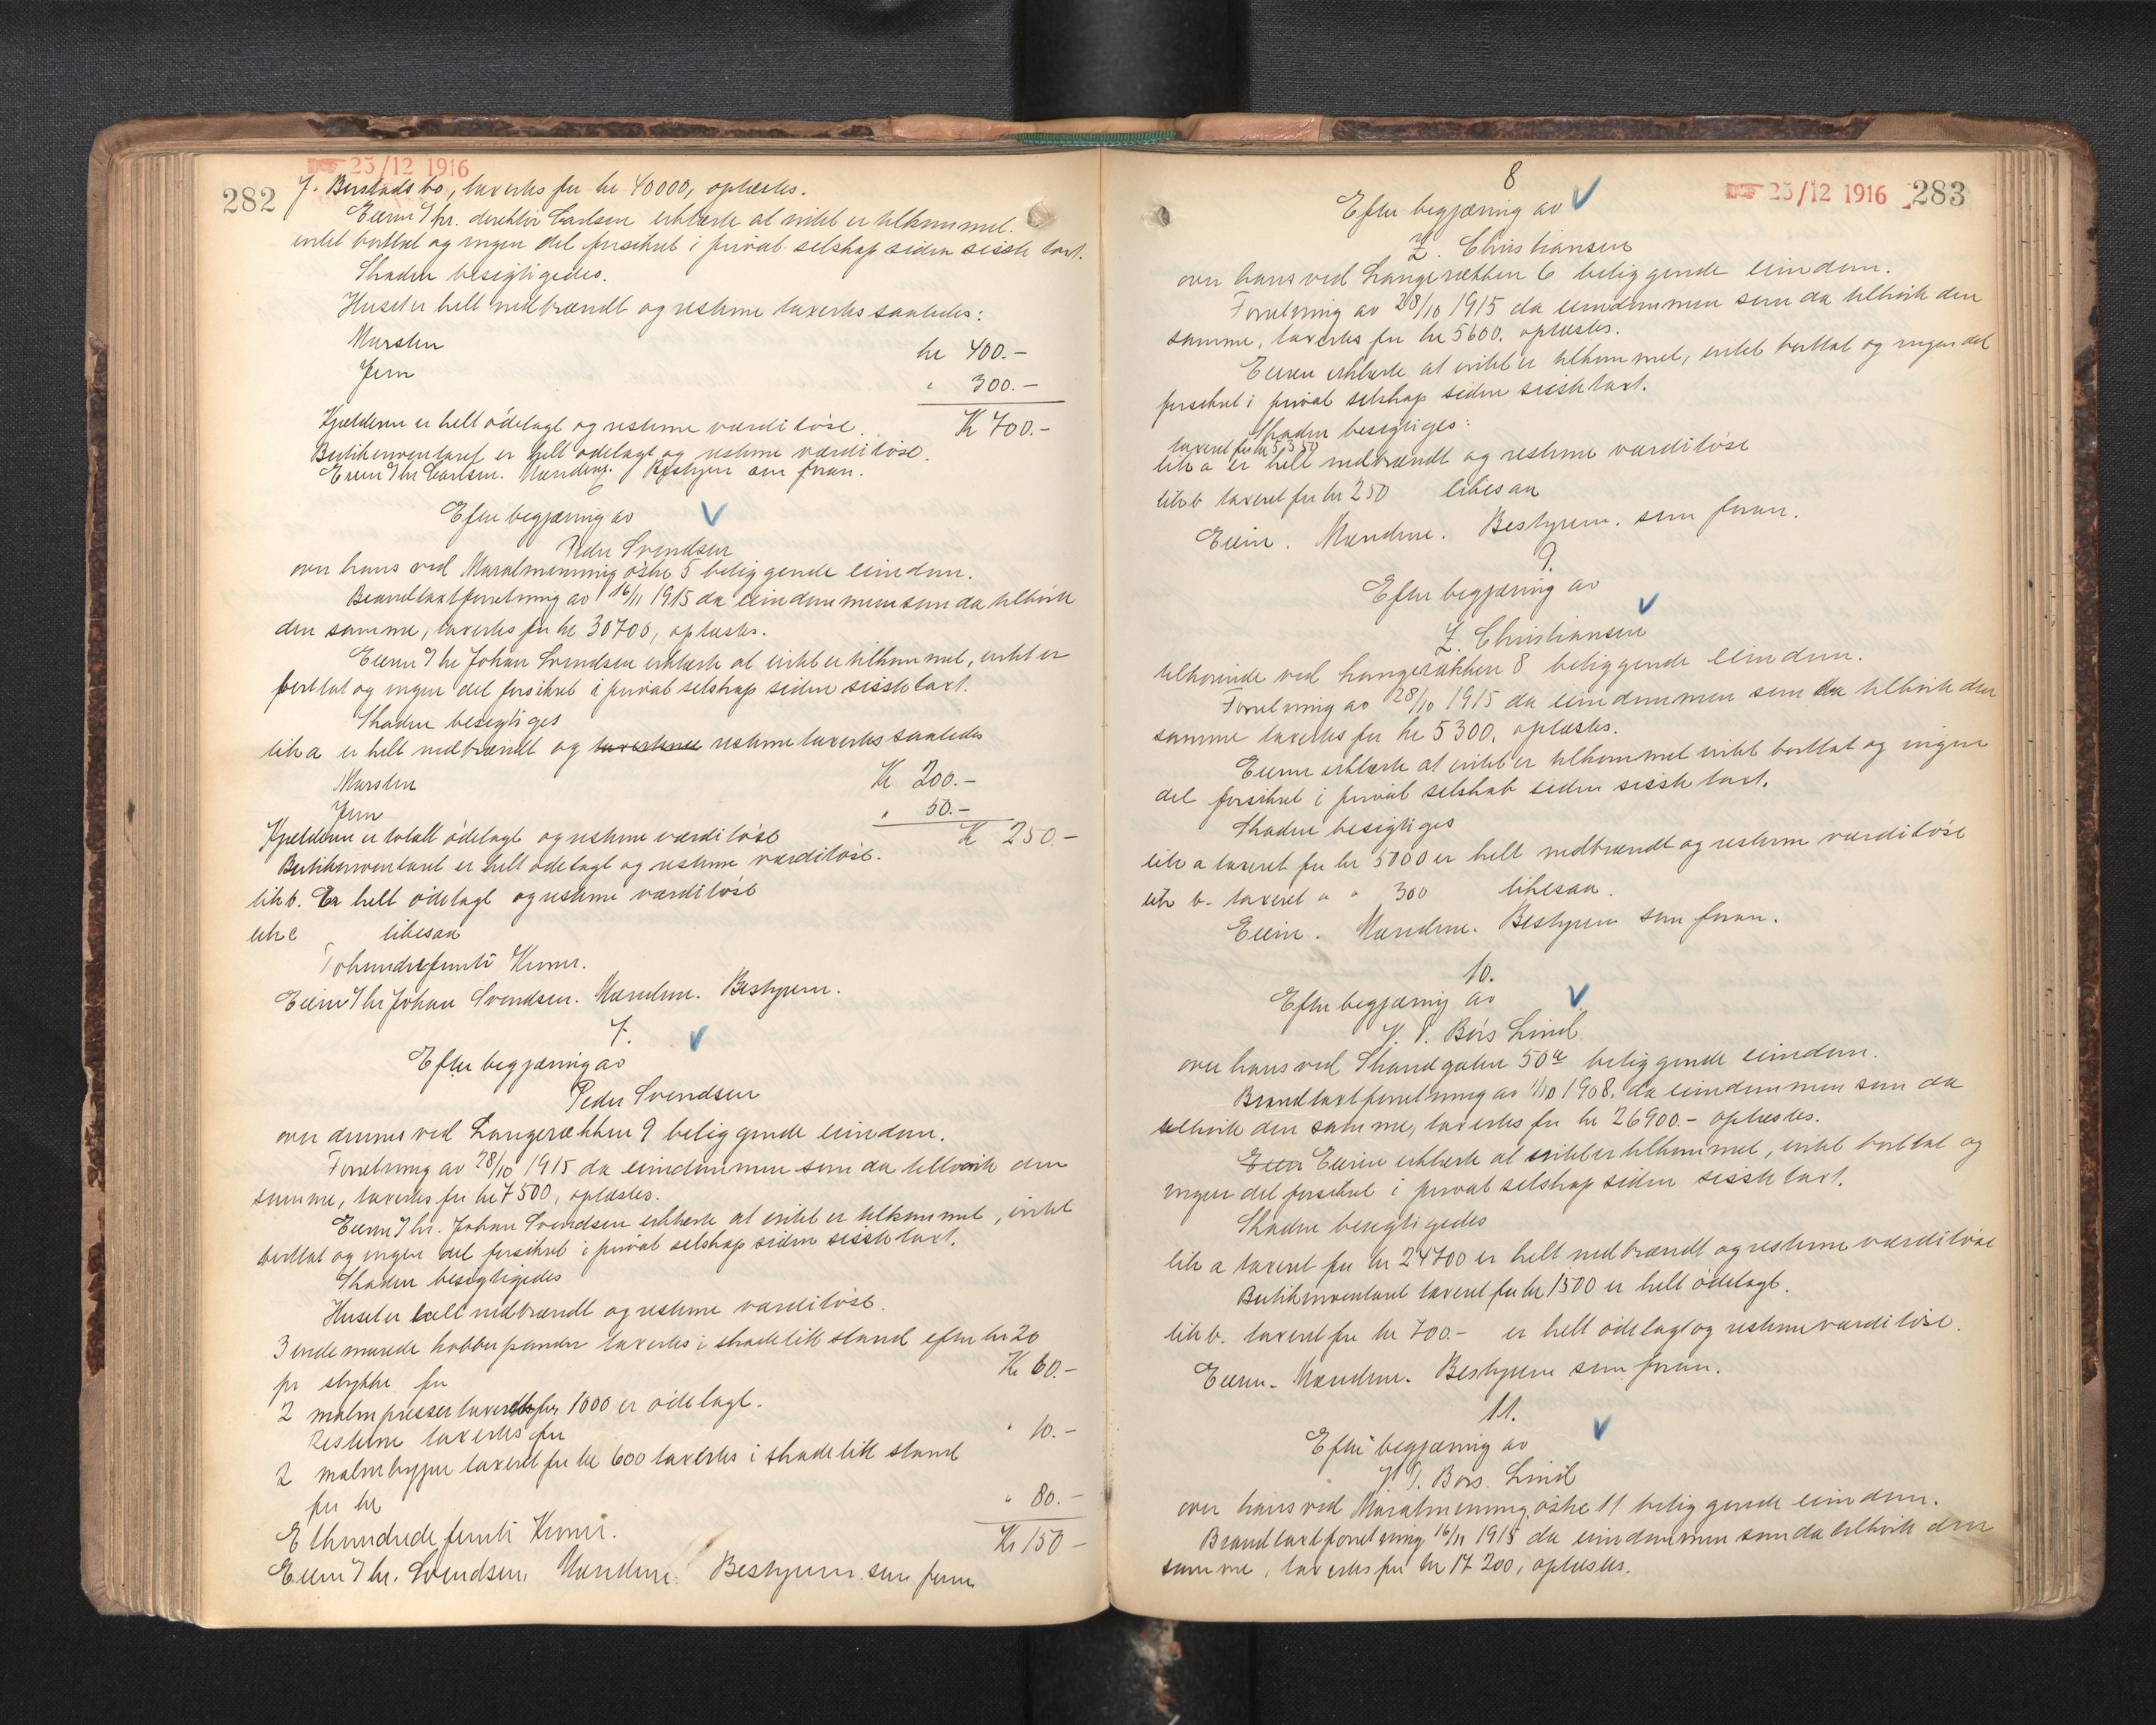 25/12 1916
282
J. Berstads bo, taxertes for kr 40000, oplæstes.
Eieren v/ hr. direktör Carlsen erklærte at intet er tilkommet.
intet borttat og ingen del forsikret i privat selskap siden sisste taxt.
Skaden besigtigedes.
Huset er helt nedbrændt og resterne taxertes saaledes:
Mursten kr 400.-
Jern " 300.-
Kr 700.-
Kjelderen er helt ödelagt og resterne værdilöse.
Butikinventaret er helt ödelagt og resterne værdilöse.
Eieren v/ hr Carlsen. Mændene. Bestyrer som foran.
Efter begjæring av
Peder Svendsen
over hans ved Muralmenning östre 5 beliggende eiendom.
Brandtaxtforretning av 16/11 1915 da eiendommen som da tilhörte
den samme, taxertes for kr 30700, oplæstes.
Eieren v/ hr Johan Svendsen erklærte at intet er tilkommet, intet er
borttat og ingen del forsikret i privat selskap siden sisste taxt.
Skaden besigtiges
litr a er helt nedbrændt og taxertene resterne taxertes saaledes
Mursten Kr 200.-
Jern " 50.-
Kjelderen er totalt ödelagt og resterne værdilöse Kr 250.-
Butikinventaret er helt ödelagt og resterne værdilöse.
litr b. Er helt ödelagt og resterne værdilöse
litr c likesaa
Tohundrefemti Kroner.
Eieren v/ hr Johan Svendsen. Mændene. Bestyreren.
7.
Efter begjæring av
Peder Svendsen
over dennes ved Langerækken 9 beliggende eiendom.
Forretning av 28/10 1915 da eiendommen som da tilhörte den
samme, taxertes for kr 7500, oplæstes.
Eieren v/ hr. Johan Svendsen erklærte at intet er tilkommet, intet
borttat og ingen del forsikret i privat selskap siden sisste taxt.
Skaden besigtigedes
Huset er helt nedbrændt og resterne værdilöse.
3 indemurede kobberpander taxertes i skadelitt stand efter kr 20
pr stykke for Kr 60.-
2 malmpresser taxert for 1000 er ödelagt.
Resterne taxertes for " 10.-
2 malmtrypper taxeret for kr 600 taxertes i skadelitt stand
for kr " 80.-
Ethundrede femti Kroner. Kr 150-
Eieren v/ hr. Svendsen. Mændene. Bestyreren som foran
25/12 1916 283
8
Efter begjæring av
Z. Christiansen
over hans ved Langerækken 6 beliggende eiendom.
Forretning av 28/10 1915 da eiendommen som da tilhörte den
samme, taxertes for kr 5600. oplæstes.
Eieren erklærte at intet er tilkommet, intet borttat og ingen del
forsikret i privat selskap siden sisste taxt.
Skaden besigtiges:
taxeret for kr 5350
litr a er helt nedbrændt og resterne værdilöse
litr b taxeret for kr 250 likesaa
Eieren. Mændene. Bestyreren. som foran.
9.
Efter begjæring av
Z. Christiansen
tilhörende ved Langerækken 8 beliggende eiendom.
Forretning av 28/10 1915 da eiendommen som da tilhörte den
samme taxertes for kr 5300. oplæstes.
Eieren erklærte at intet er tilkommet intet borttat og ingen
del forsikret i privat selskab siden sisste taxt.
Skaden besigtiges
litr a taxeret for kr 5000 er helt nedbrændt og resterne værdilöse
litr b. taxeret " " 300 likesaa.
Eieren. Mændene. Bestyreren som foran.
10.
Efter begjæring av
Börs Lind
over hans ved Strandgaten 50a beliggende eiendom.
Brandtaxtforretning av 1/10 1908. da eiendommen som da
tilhörte den samme, taxertes for kr 26900.- oplæstes.
Eier Eieren erklærte at intet er tilkommet, intet borttat og
ingen del forsikret i privat selskap siden sisste taxt.
Skaden besigtigedes
litr a taxeret for kr 24700 er helt nedbrændt og resterne værdilöse
Butikinventaret taxeret for kr 1500 er helt ödelagt.
litr b. taxeret for kr 700.- er helt ödelagt og resterne værdilöse.
Eieren. Mændene. Bestyreren som foran.
11.
Efter begjæring av
Börs Lind
over hans ved Muralmenning östre 11 beliggende eiendom.
Brandtaxtforretning 16/11 1915 da eiendommen som da tilhörte den
samme, taxertes for kr 17200, oplæstes.